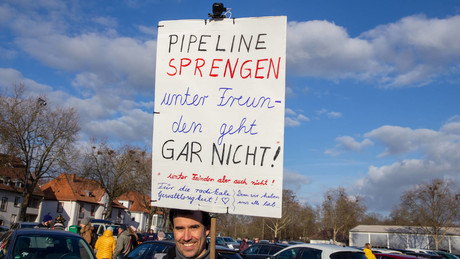 PIPELINE
SPRENGEN
unter Freun-
den geht
GAR NICHT!
* unter Feinden aber auch nicht!
Für die radikale
Gewaltlosigkeit! ♡
Denn wir haben
uns alle lieb.